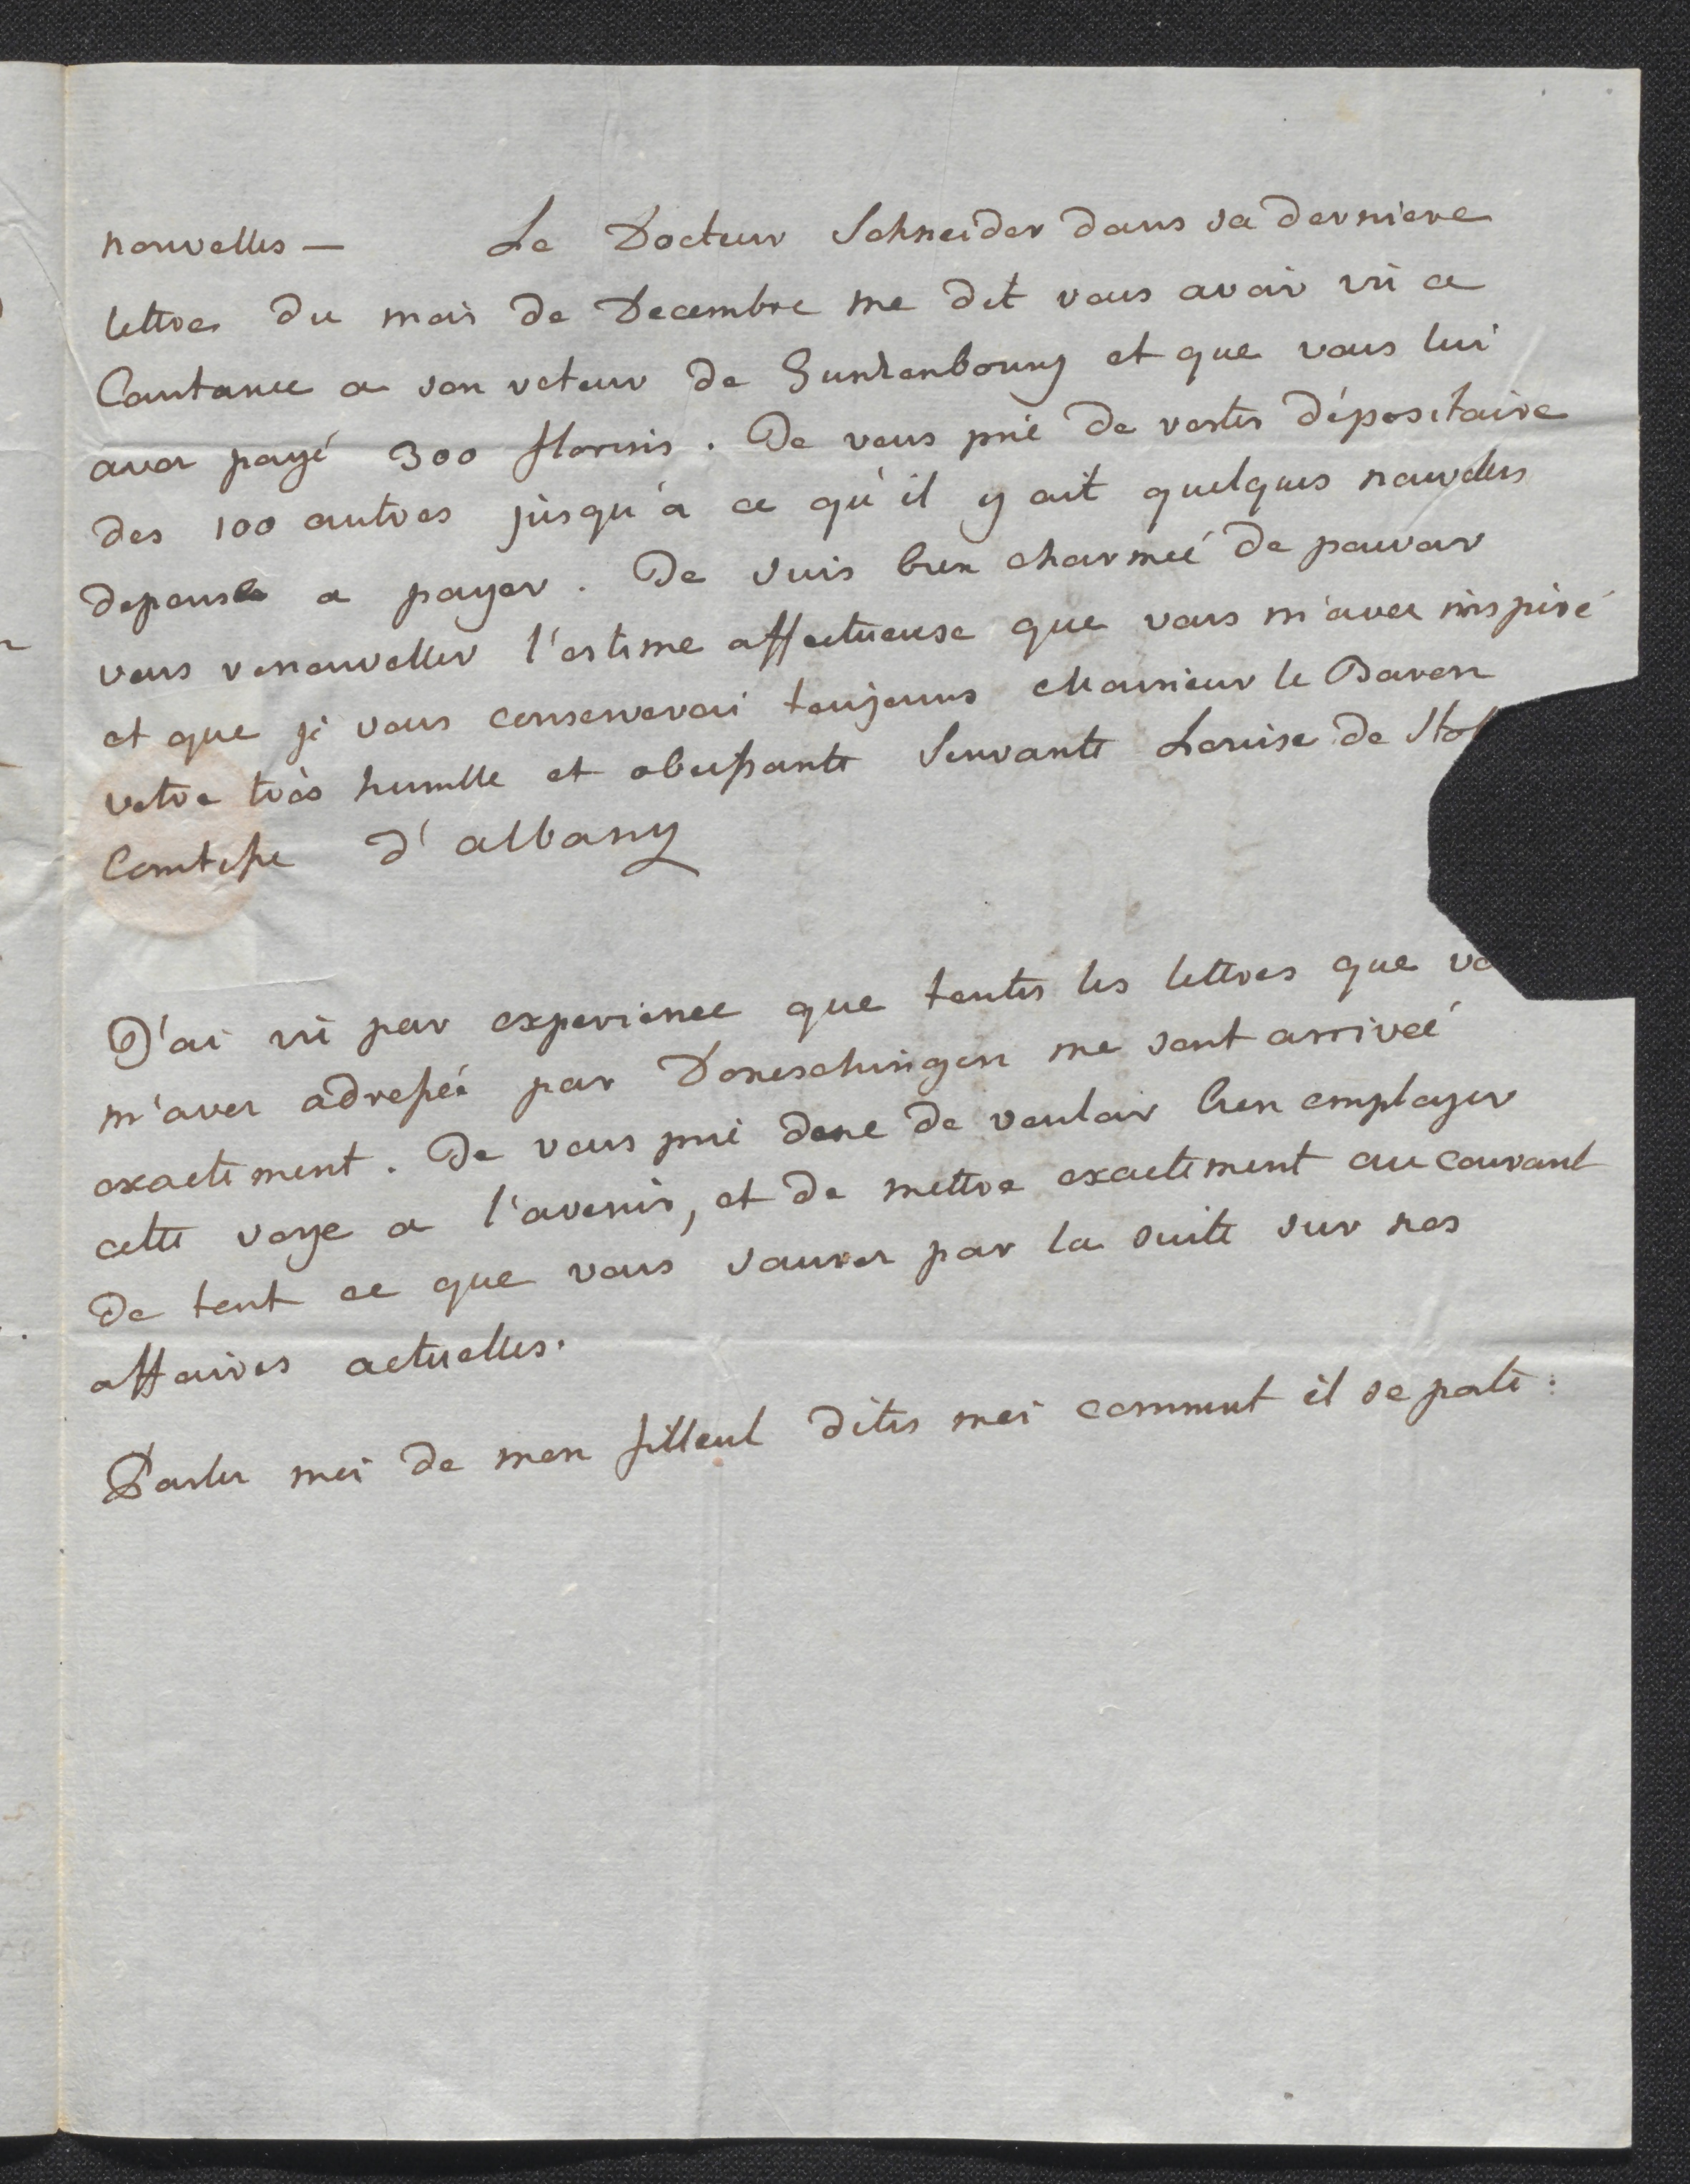 nouvelles — Le Docteur Schneider dans sa derniere
lettre du mois de Decembre me dit vous avoir vû a
Constance a son retour de Guntzenbourg et que vous lui
avez payé 300 florins. Je vous prie de rester dépositaire
des 100 autres jusqu'à ce qu'il y ait quelques nouvelles
depense a payer. Je suis bien charmeé de pouvoir
vous renouveller l'estime affectueuse que vous m'avez inspiré
et que je vous conserverai toujours Monsieur le Baron
votre très humble et obeissante Servante Louise de Stol
Comtesse d'albany
J'ai vû par experience que toutes les lettres que vo
m'avez adressée par Doneschingen me sont arriveé
exactement. Je vous prie donc de vouloir bien employer
cette voye a l'avenir, et de mettre exactement au courant
de tout ce que vous saurez par la suite sur nos
affaires actuelles.
Parlez moi de mon filleul dites moi comment il se porte: